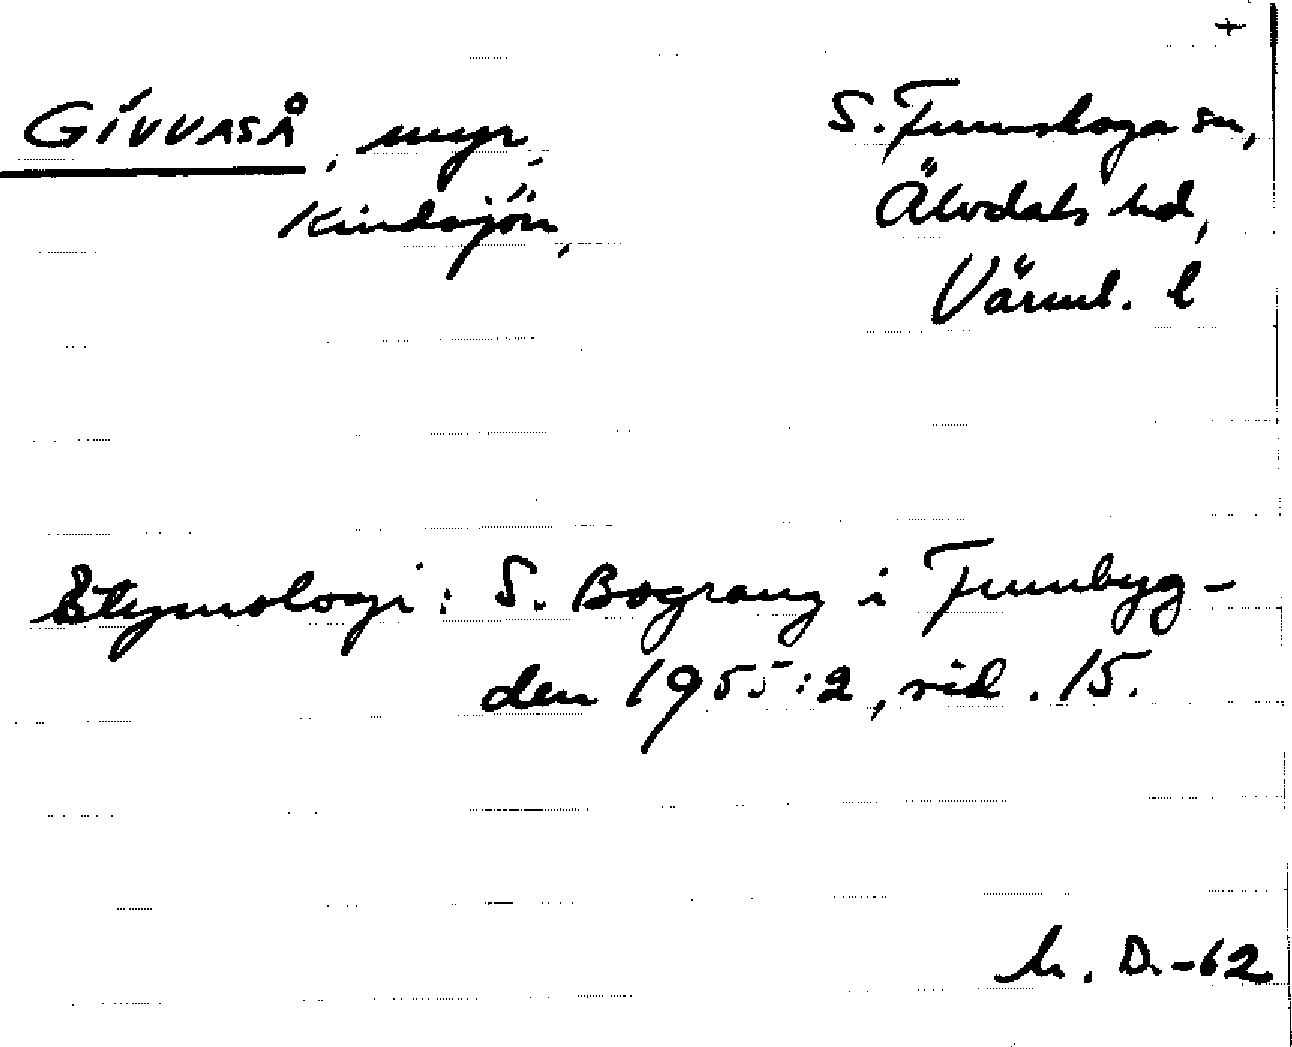 +
GÍVVASÅ, myr, S. Finnskoga sn,
Kindsjön, Älvdals hd,
Värml. l
Etymologi: S. Bograng i Finnbyg-
den 1955:2, sid. 15.
D. -62